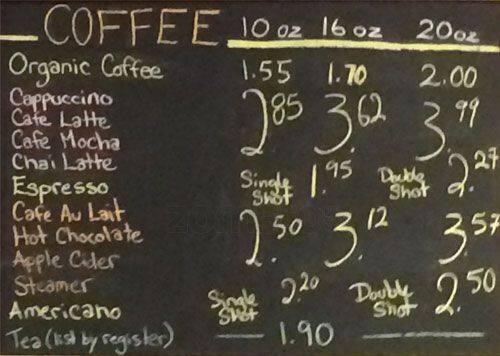 COFFEE 10 oz 16 oz 20 oz
Organic Coffee 1.55 1.70 2.00
Cappuccino
Cafe Latte 2.85 3.62 3.99
Cafe Mocha
Chai Latte
Espresso Single Shot 1.95 Double Shot 2.27
Cafe Au Lait
Hot Chocolate 2.50 3.12 3.57
Apple Cider
Steamer
Americano Single Shot 2.20 Double Shot 2.50
Tea (list by register) 1.90